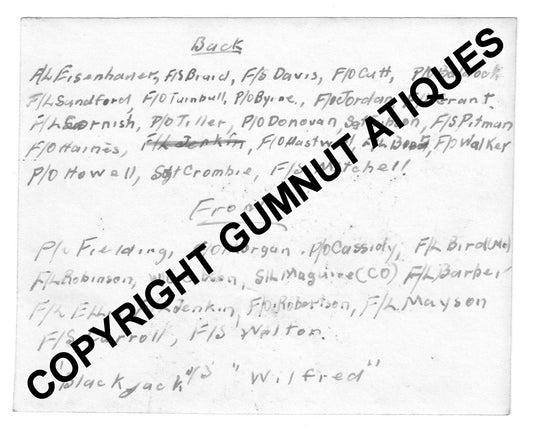 Back
F/L Eisenhauer, F/S Braid, F/S Davis, F/O Cutt,
F/L Sandford, F/O Turnbull, P/O Byrne, F/O Jordan
F/L Cornish, P/O Tiller, P/O Donovan, F/S Pitman
F/O Haines, F/L Jenkin, F/O Hastwell, F/O Walker
P/O Howell, Sgt Crombie, F/S Mitchell
Front
P/O Fielding, F/O Morgan, P/O Cassidy, F/L Bird (Mo)
F/L Robinson, S/L Maguire (CO) F/L Barber
F/L Jenkin, F/O Robertson, F/L Mayson
F/S Carroll, F/S Welton.
Black Jack "Wilfred"
COPYRIGHT GUMNUT ATIQUES